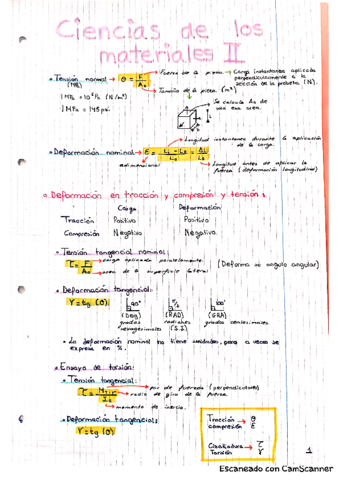 Ciencias de los
materiales II
Tensión normal → σ = F/A₀
(MPa)
Fuerza de la pieza. → Carga instantánea aplicada
perpendicularmente a la
sección de la probeta (N).
Tamaño de la pieza. (m²)
1 MPa = 10⁶ Pa (N/m²)
1 MPa = 145 psi
Se calcula A₀ de
una esa área.
Longitud instantánea durante la aplicación
de la carga.
Deformación nominal → ε = (Lᵢ - L₀)/L₀ = ΔL/L₀
adimensional
Longitud antes de aplicar la
fuerza (deformación longitudinal)
Deformación en tracción y compresión y tensión:
Carga Deformación
Tracción Positivo Positivo
Compresión Negativo Negativo
Tensión tangencial nominal:
τ = F/A₀
carga aplicada paralelamente.
área de la superficie lateral
(Deforma un ángulo angular)
Deformación tangencial:
γ = tg (θ)
90° π/2 100°
(DEG) (RAD) (GRA)
grados radianes grados centesimales
sexagesimales (S.I)
La deformación nominal no tiene unidades, pero a veces se
expresa en %.
Ensayo de torsión:
Tensión tangencial:
par de fuerzas (perpendiculares)
radio de giro de la fuerza.
momento de inercia.
Deformación tangencial:
γ = tg (θ)
Tracción → σ
compresión ε
Cizalladura → τ
Torsión γ
1
Escaneado con CamScanner